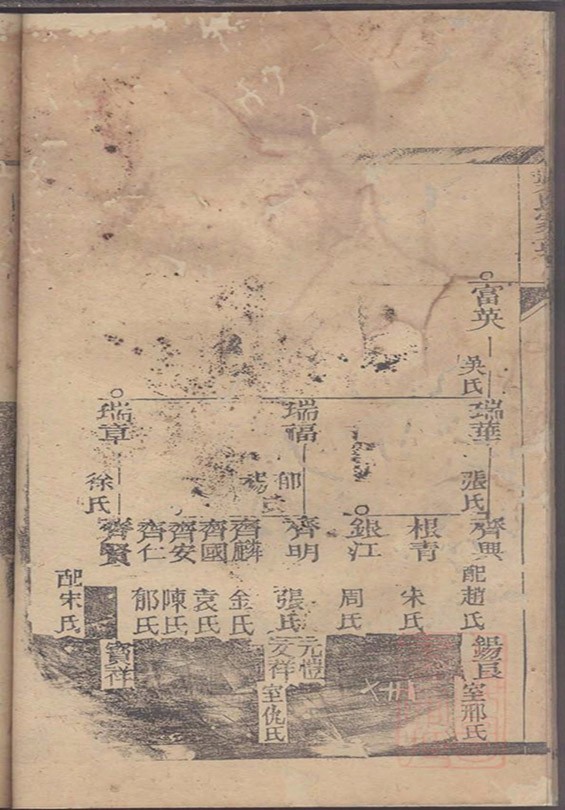 富英
吳氏
瑞華
張氏
齊興
配趙氏
錫良
室邢氏
根青
朱氏
銀江
周氏
瑞福
郁
楊
齊明
張氏
元愷
文祥
室仇氏
齊麟
金氏
齊國
袁氏
齊安
陳氏
齊仁
郁氏
瑞章
徐氏
齊賢
配宋氏
寶祥